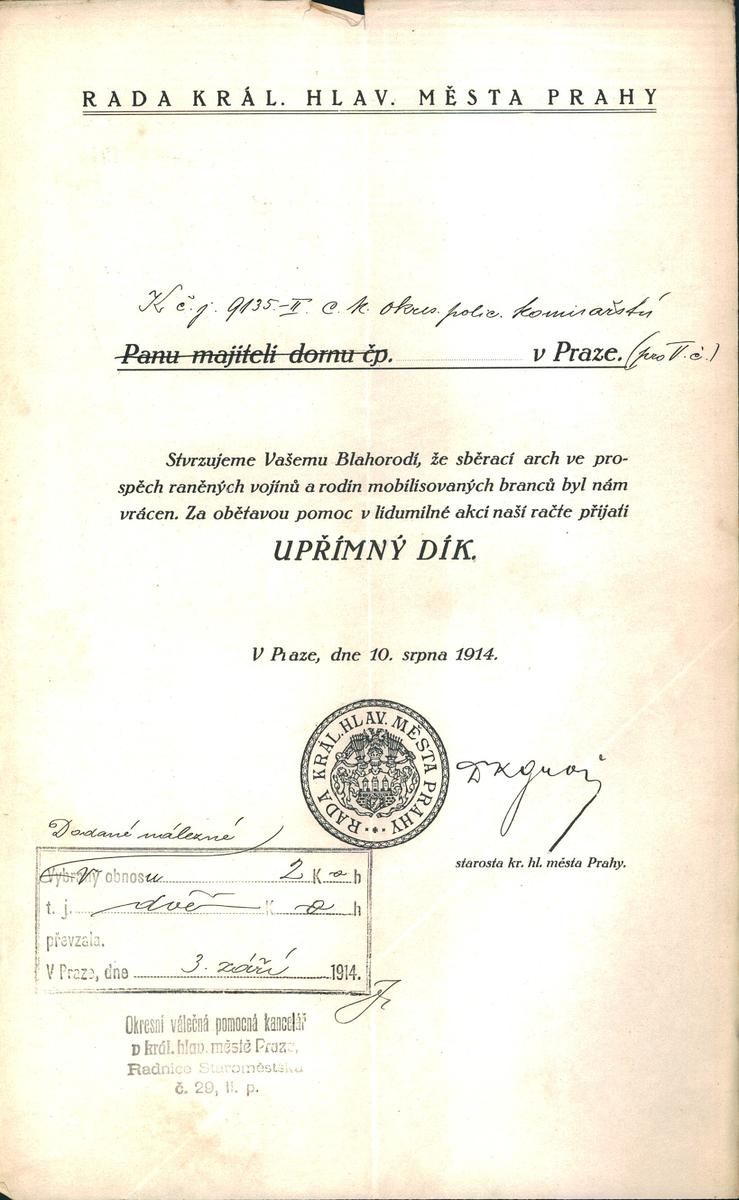 RADA KRÁL. HLAV. MĚSTA PRAHY
K č. j. 9135-II. c. k. okres. polic. komisařství
Panu majiteli domu čp. v Praze. (pro V. č.)
Stvrzujeme Vašemu Blahorodí, že sběrací arch ve pro-
spěch raněných vojínů a rodin mobilisovaných branců byl nám
vrácen. Za obětavou pomoc v lidumilné akci naší račte přijati
UPŘÍMNÝ DÍK.
V Praze, dne 10. srpna 1914.
RADA KRÁL. HLAV. MĚSTA PRAHY
starosta kr. hl. města Prahy.
Dodané nálezné
Vybraný obnosu 2 K h
t. j. dvě K h
převzala.
V Praze, dne 3. září 1914.
Okresní válečná pomocná kancelář
v král. hlav. městě Praze,
Radnice Staroměstská
č. 29, II. p.